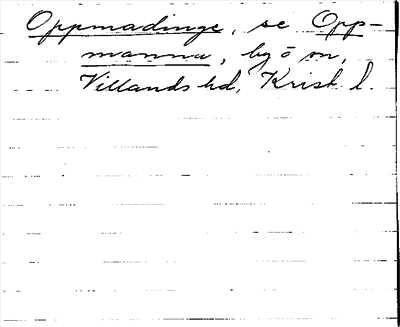 Oppmadinge, se Opp-
manna, by o sn,
Villands hd, Krist. l.